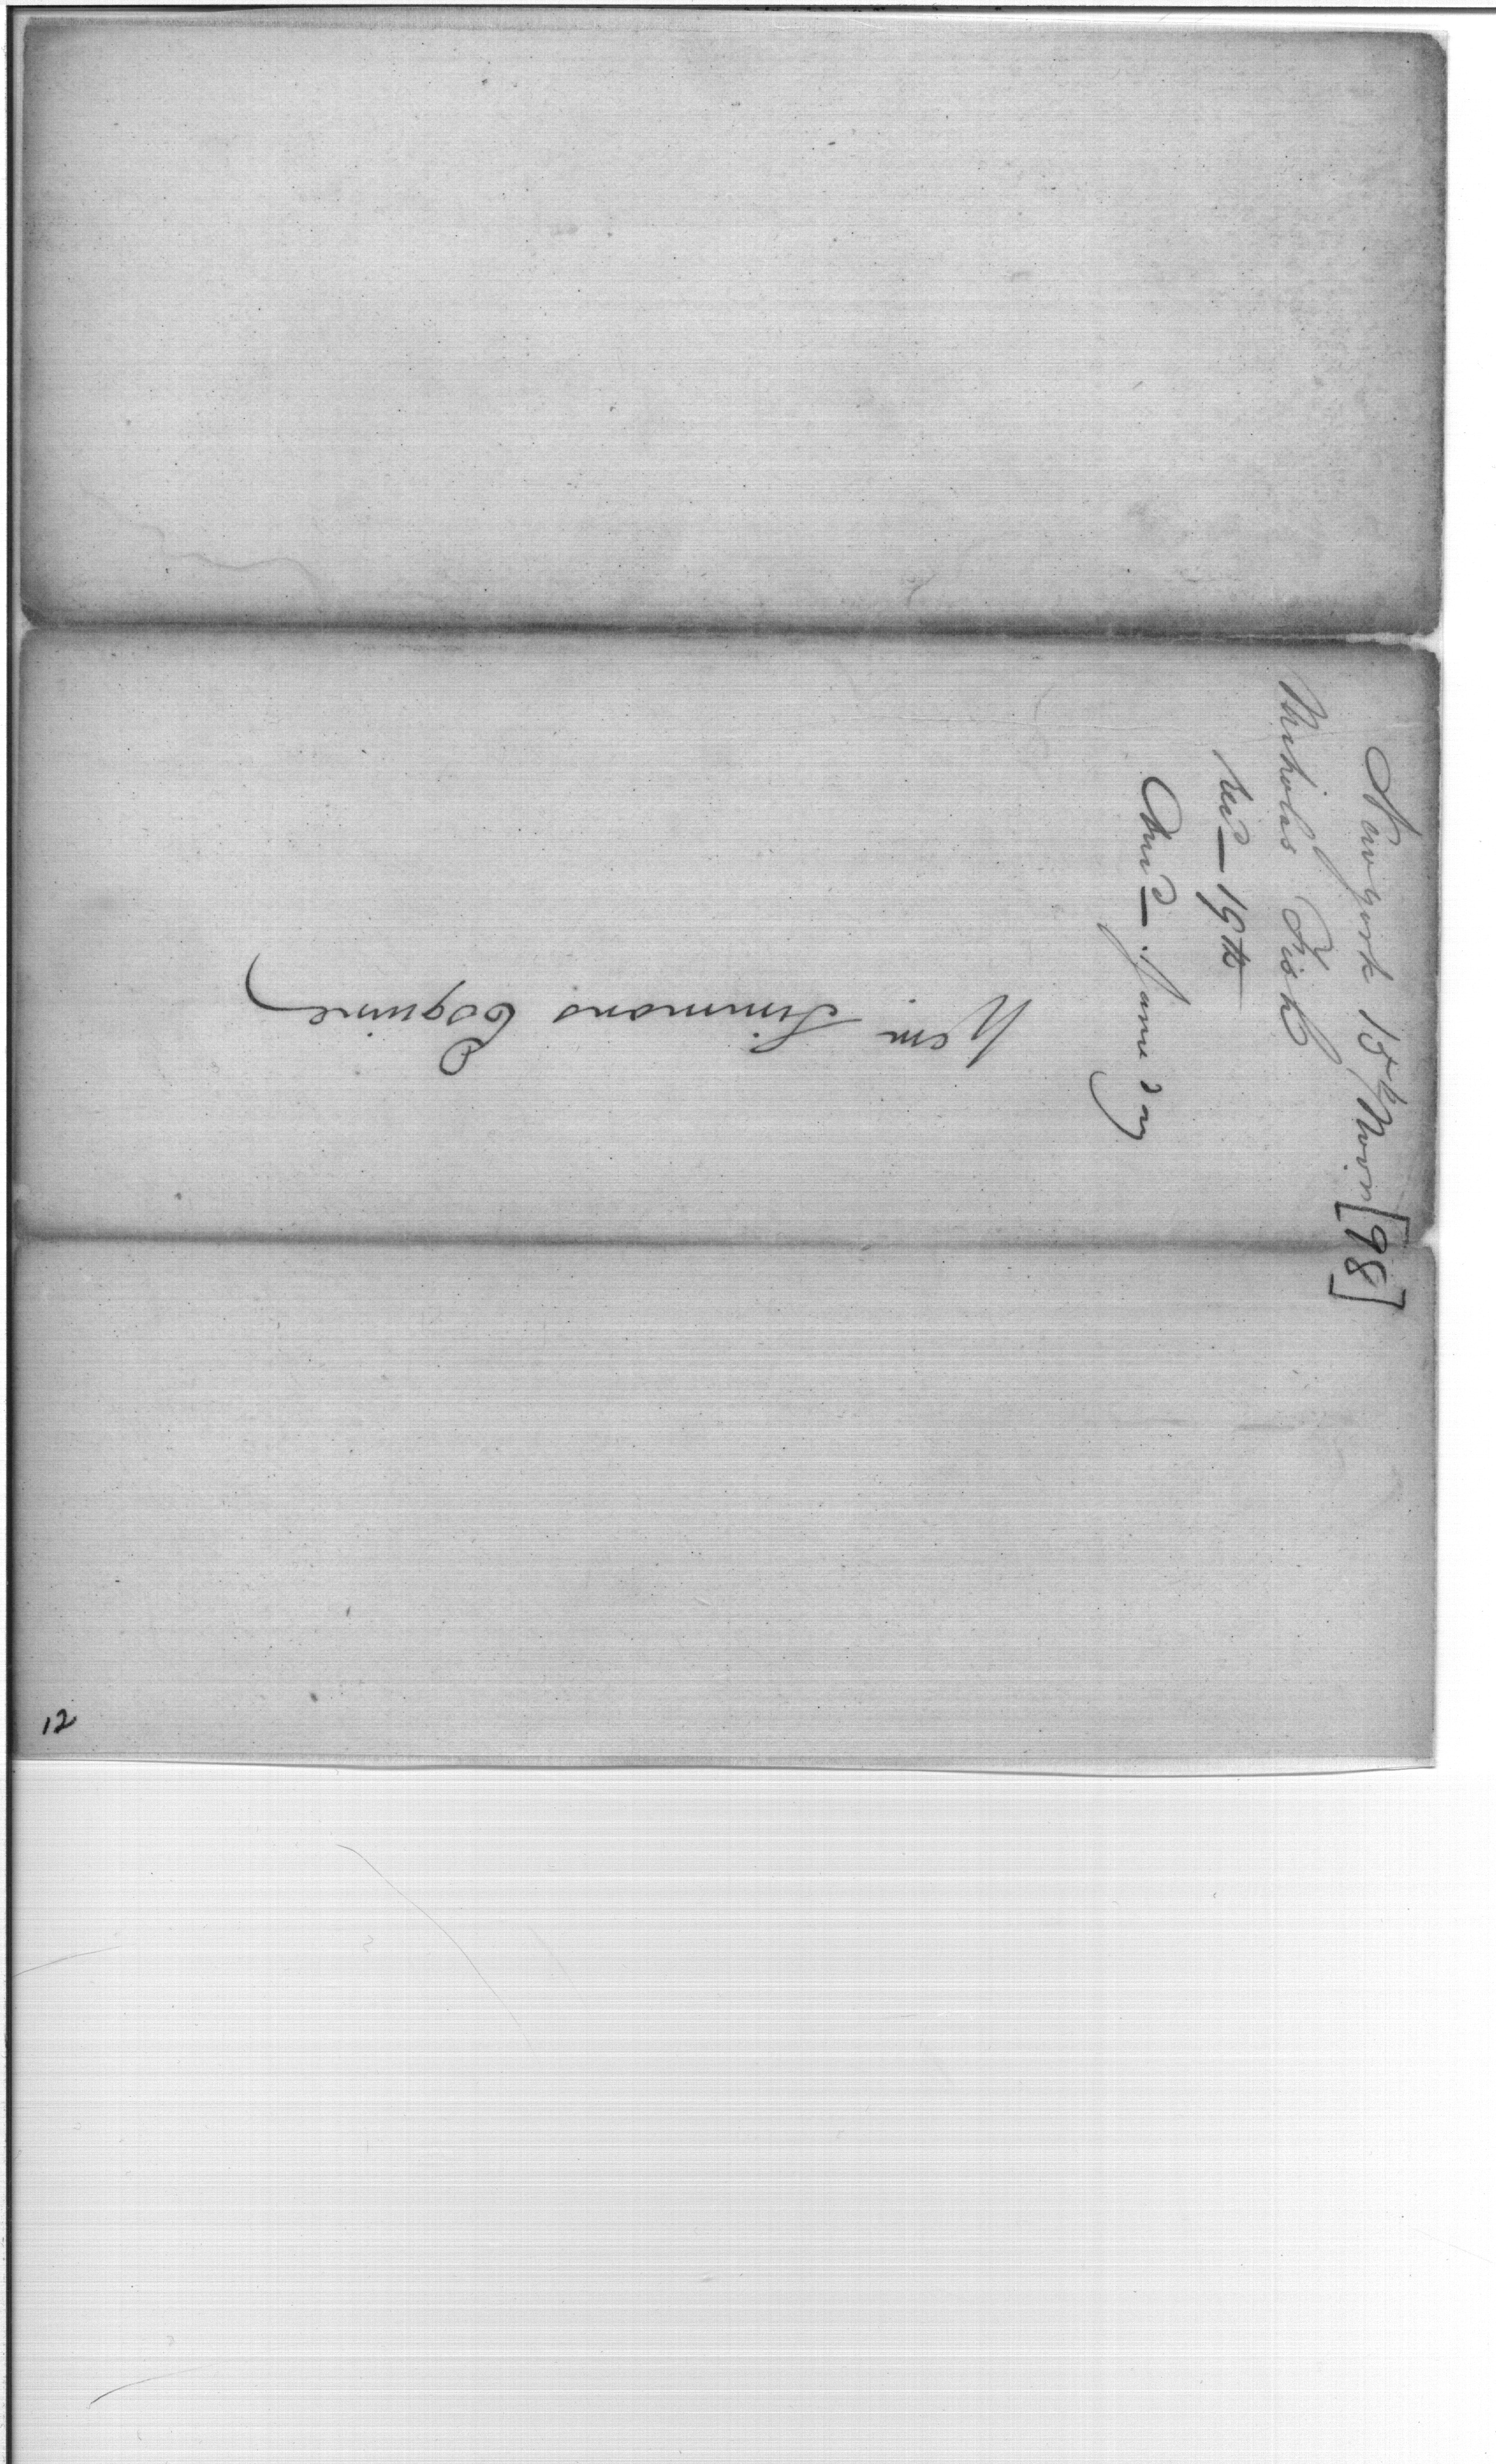 Newyork 15th Novr [98]
Nicholas Fish
Recd — 19th
Ansd — Same day
Wm Simmons Esquire
12